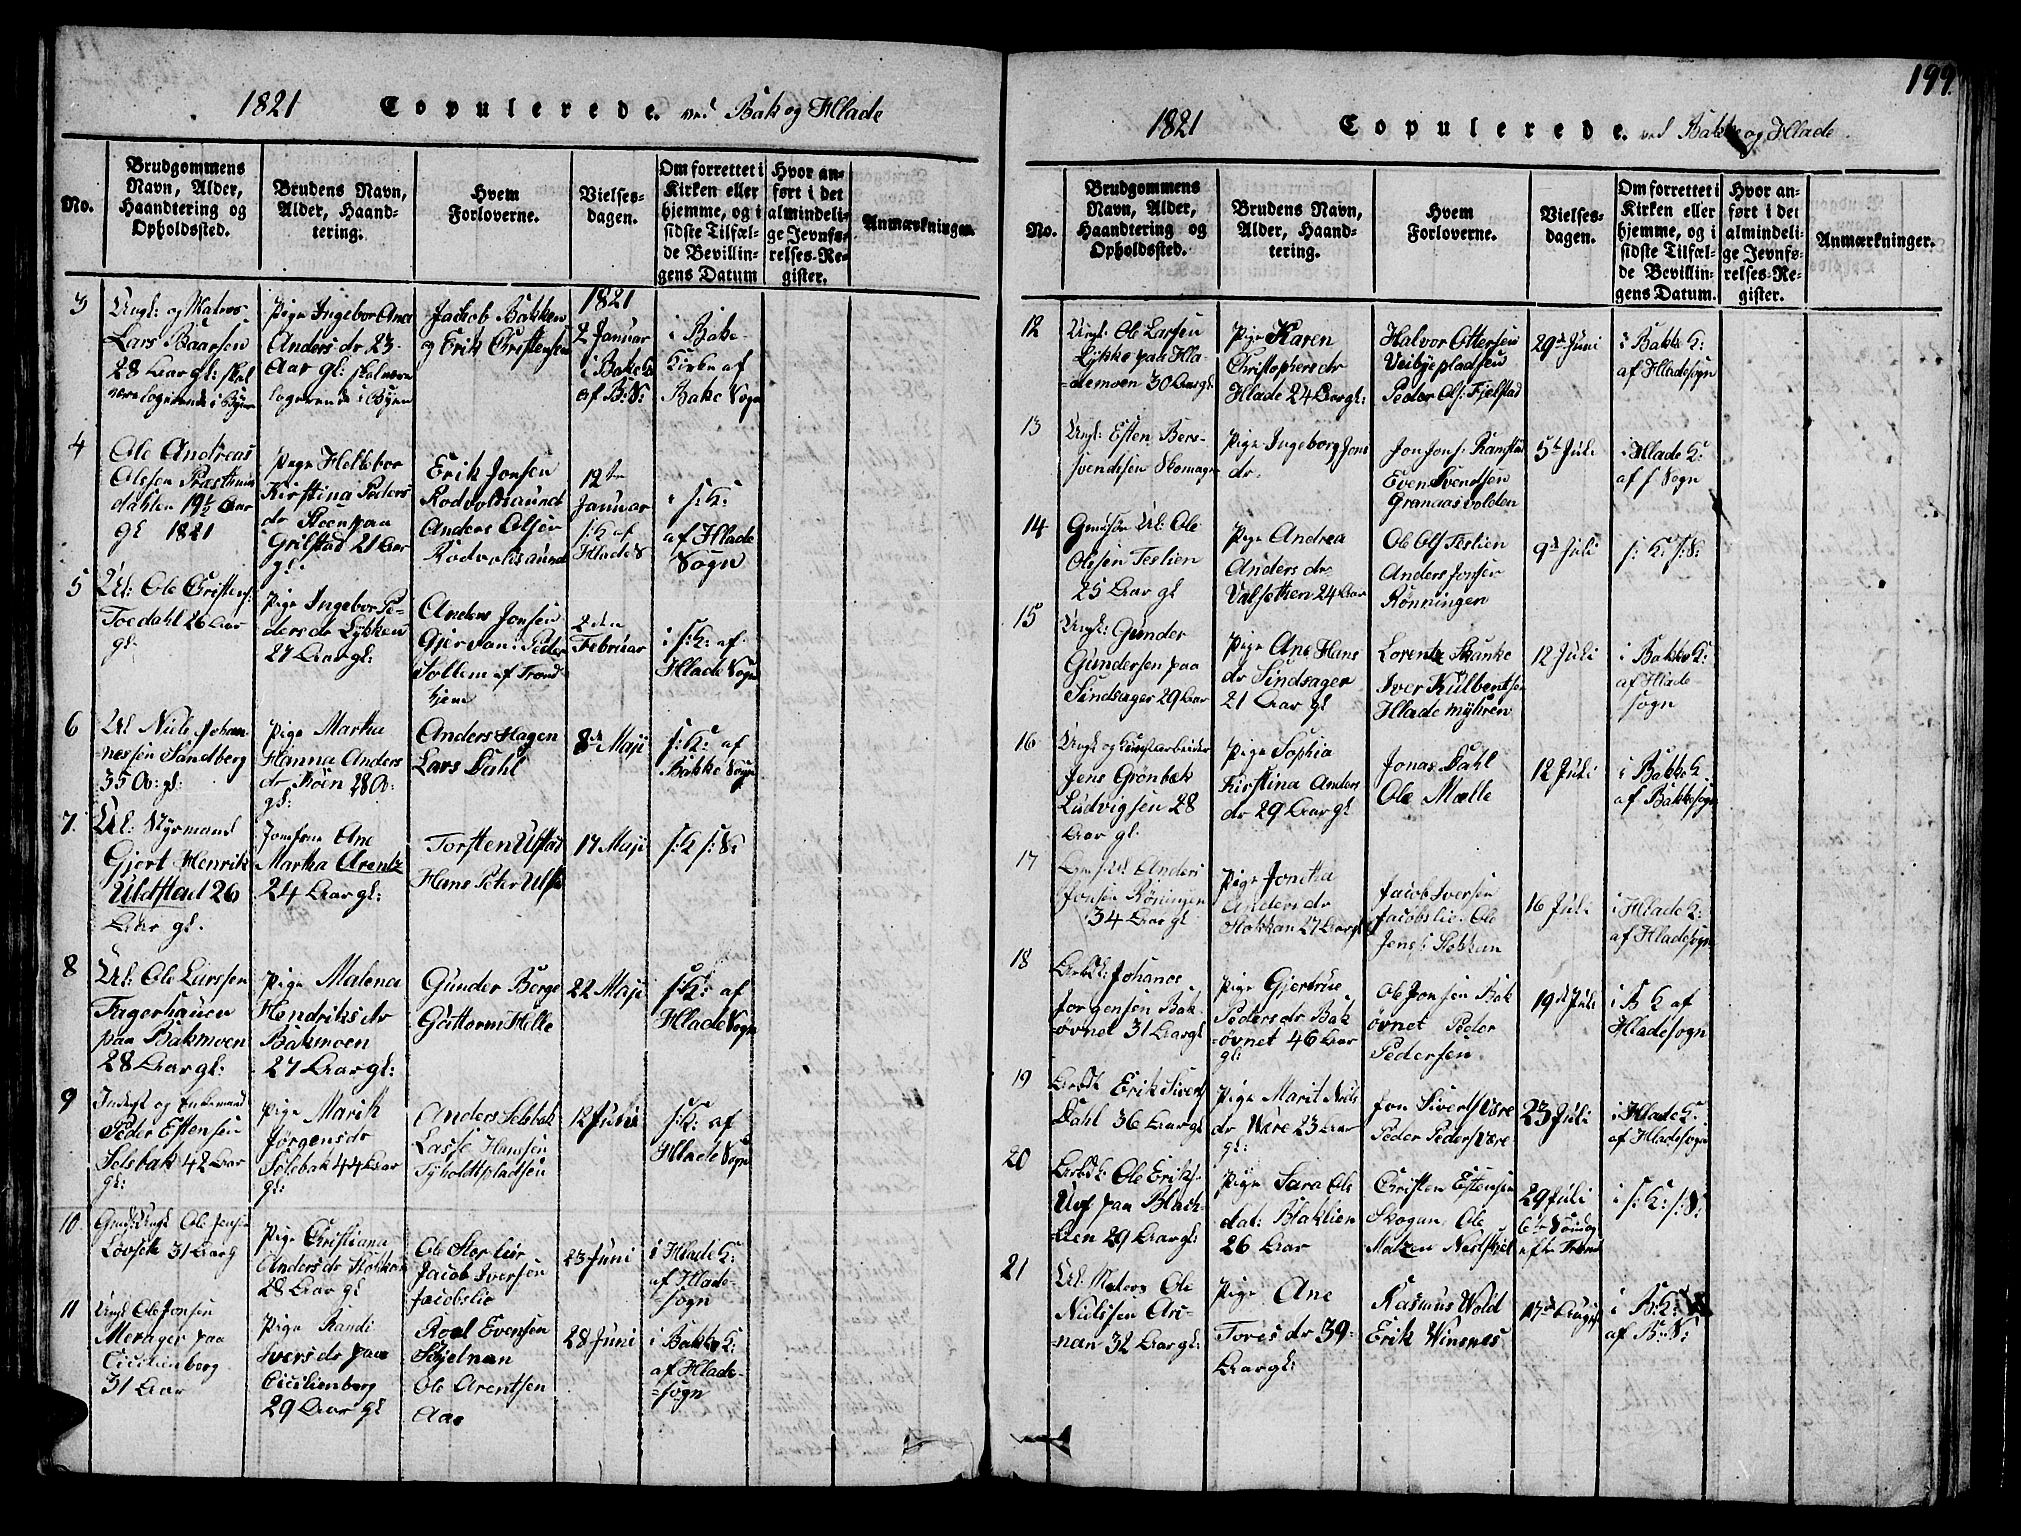 1821 Copulerede. ved Bak og Hlade
No.
Brudgommens Navn, Alder, Haandtering og Opholdssted.
Brudens Navn, Alder, Haandtering.
Hvem Forloverne.
Vielses-dagen.
Om forrettet i Kirken eller hjemme, og i sidste Tilfælde Bevillingens Datum
Hvor anført i det almindelige Jevnførelses-Register.
Anmærkninger.
3
Ungk: og Matros
Lars Baarsen
28 Aar gl: skal
være logerende i Byen
Pige Ingebor Ane
Anders dr 23
Aar gl: skal være
logerende i Byen
Jackob Bakken
og Erik Cristensen
1821
2 Januar
i Bakek
af B: S:
i Bake
Kirke af
Bake Sogn
4
Ole Andreas
Olssen Præsthus
dahlen 19½ Aar
gl 1821
Pige Helkebor
Kirstina Peders
dr Steen paa
Grilstad 21 Aar
gl:
Erik Jonsen
Rodvoldsaunet
Anders Olsen
Rodvoldsaunet
12te
Januar
s: K af
Hlade S
i s: K:
af Hlade
Sogn
5
U: Ole Cristens:
Toedahl 26 Aar
gl:
Pige Ingebor Pe-
dersdr Lykken
27 Aar gl:
Anders Jonsen
Gjervan: Peder
Sollem af Trond
hjem
2den
Februar
i s: K: af
Hlade Sogn
6
U: Niels Johan-
nessen Sandberg
35 A: gl:
Pige Martha
Hanna Anders
dr Moen 28 A:
gl:
Anders Hagen
Lars Dahl
8de Maji
s: K: af
Bakke Sogn
7.
U: Styrmand
Gjert Henrik
Uldstad 26
Aar gl.
Jomfrue Ane
Martha Arentz
24 Aar gl:
Torsten Ulstad
Hans Peter Ulst
17 Maji
s: K s: S:
8
U: Ole Larssen
Fagerhauen
paa Bakmoen
28 Aar gl:
Pige Malena
Hendriks dr
Bakmoen
27 Aar gl:
Gunder Berge
Guttorm Helle
22 Maji
s: K: af
Hlade Sogn
9
Peder Estensen
Selsbak 42 Aar
gl:
Pige Marit
Jørgensdr
Selsbak 44 Aar
gl:
Anders Selsbak
Lasse Hansen
Tyholdtpladsen
12 Junii
s: K: af
Hlade Sogn
10
Ungk Ole Jensen
Løvset 31 Aar g
Pige Christiana
Anders dr Stokkan
28 Aar gl
Ole Storlier
Jacob Iversen
Jacobslie
23 Juni
i Hlade K:
af Hlade-
sogn
11
Ungk Ole Jonsen
Meråger paa
Cicilienberg
31 Aar
Pige Randi
Ivers dr paa
Cicilienberg
29 Aar gl
Roel Evensen
Schjelnan
Ole Arentsen
Aas
28 Juni
i Bakke K:
af Hlade-
sogn
199.
1821 Copulerede. ved Bakke og Hlade
No.
Brudgommens Navn, Alder, Haandtering og Opholdssted.
Brudens Navn, Alder, Haandtering.
Hvem Forloverne.
Vielses-dagen.
Om forrettet i Kirken eller hjemme, og i sidste Tilfælde Bevillingens Datum.
Hvor anført i det almindelige Jevnførelses-Register.
Anmærkninger.
12
Ungk: Ole Larsen
Lykke paa Hla-
demoen 30 Aar gl:
Pige Karen
Christophersdr
Hlade 24 Aar gl:
Halvor Ottersen
Veibyepladsen
Peder Ols: Fjelstad
29d Juni
i Bakke K:
af Hladesogn
13
Ungk: Esten Ber-
svendsen Skomager
Pige Ingeborg Jons
dr.
Jon Jons: Ranstad
Even Svendsen
Granaasvolden
5te Juli
i Hlade K:
af s Sogn
14
U: Ole
Olesen Teslien
25 Aar gl
Pige Andrea
Anders dr
Valsethen 24 Aar
Ole Ols Teslien
Anders Jonsen
Rønningen
9d Juli
s: K: s: S:
15
Ungk: Gunder
Gundersen paa
Sindsager 29 Aar
Pige Ane Hans
dr Sindsager
21 Aar gl
Lorentz Skanke
Iver Kulbentsen
Hlade myhren
12 Juli
i Bakke K:
af Hlade-
sogn
16
Ungk og
Jens Grønbek
Ludvigsen 28
Aar gl:
Pige Sophia
Kirstina Anders
dr 29 Aar gl
Jonas Dahl
Ole Mølle
12 Juli
i Bakke K.
af Bakkesogn
17
Anders
Jonsen Røningen
34 Aar gl
Pige Jonetta
Anders dr
Stokkan 27 Aar gl
Jacob Iversen
Jacobslie. Ole
Jens: Stokkan
16 Juli
i Hlade K:
af Hladesogn
18
Johanes
Jørgensen Bak-
øvnet 31 Aar gl
Pige Gjertrue
Peders dr Bak
øvnet 46 Aar
gl:
Ole Jonsen Bak
øvnet Peder
Pedersen
19d Juli
i B K af
Hladesogn
19
Erik Sivert
Dahl 36 Aar gl
Pige Marit Niels
dr Være 23 Aar
gl:
Jon Siverts Være
Peder Peders Være
23 Juli
i Hlade K:
af Hladesogn
20
Ole Eriks:
Uvs paa Blak-
lien 29 Aar gl:
Pige Sara Ole
dat: Blaklien
26 Aar
Cristen Estensen
Skogan Ole
Matzen
29 Juli
6te Søndag
efter Trini
i s: K: s: S:
21
U: Matros Ole
Nielssen Ar-
nan 32 Aar gl:
Pige Ane
Tores dr 39
Aar gl:
Rasmus Wold
Erik Winsnes
17de August
i B: K:
af B: S: